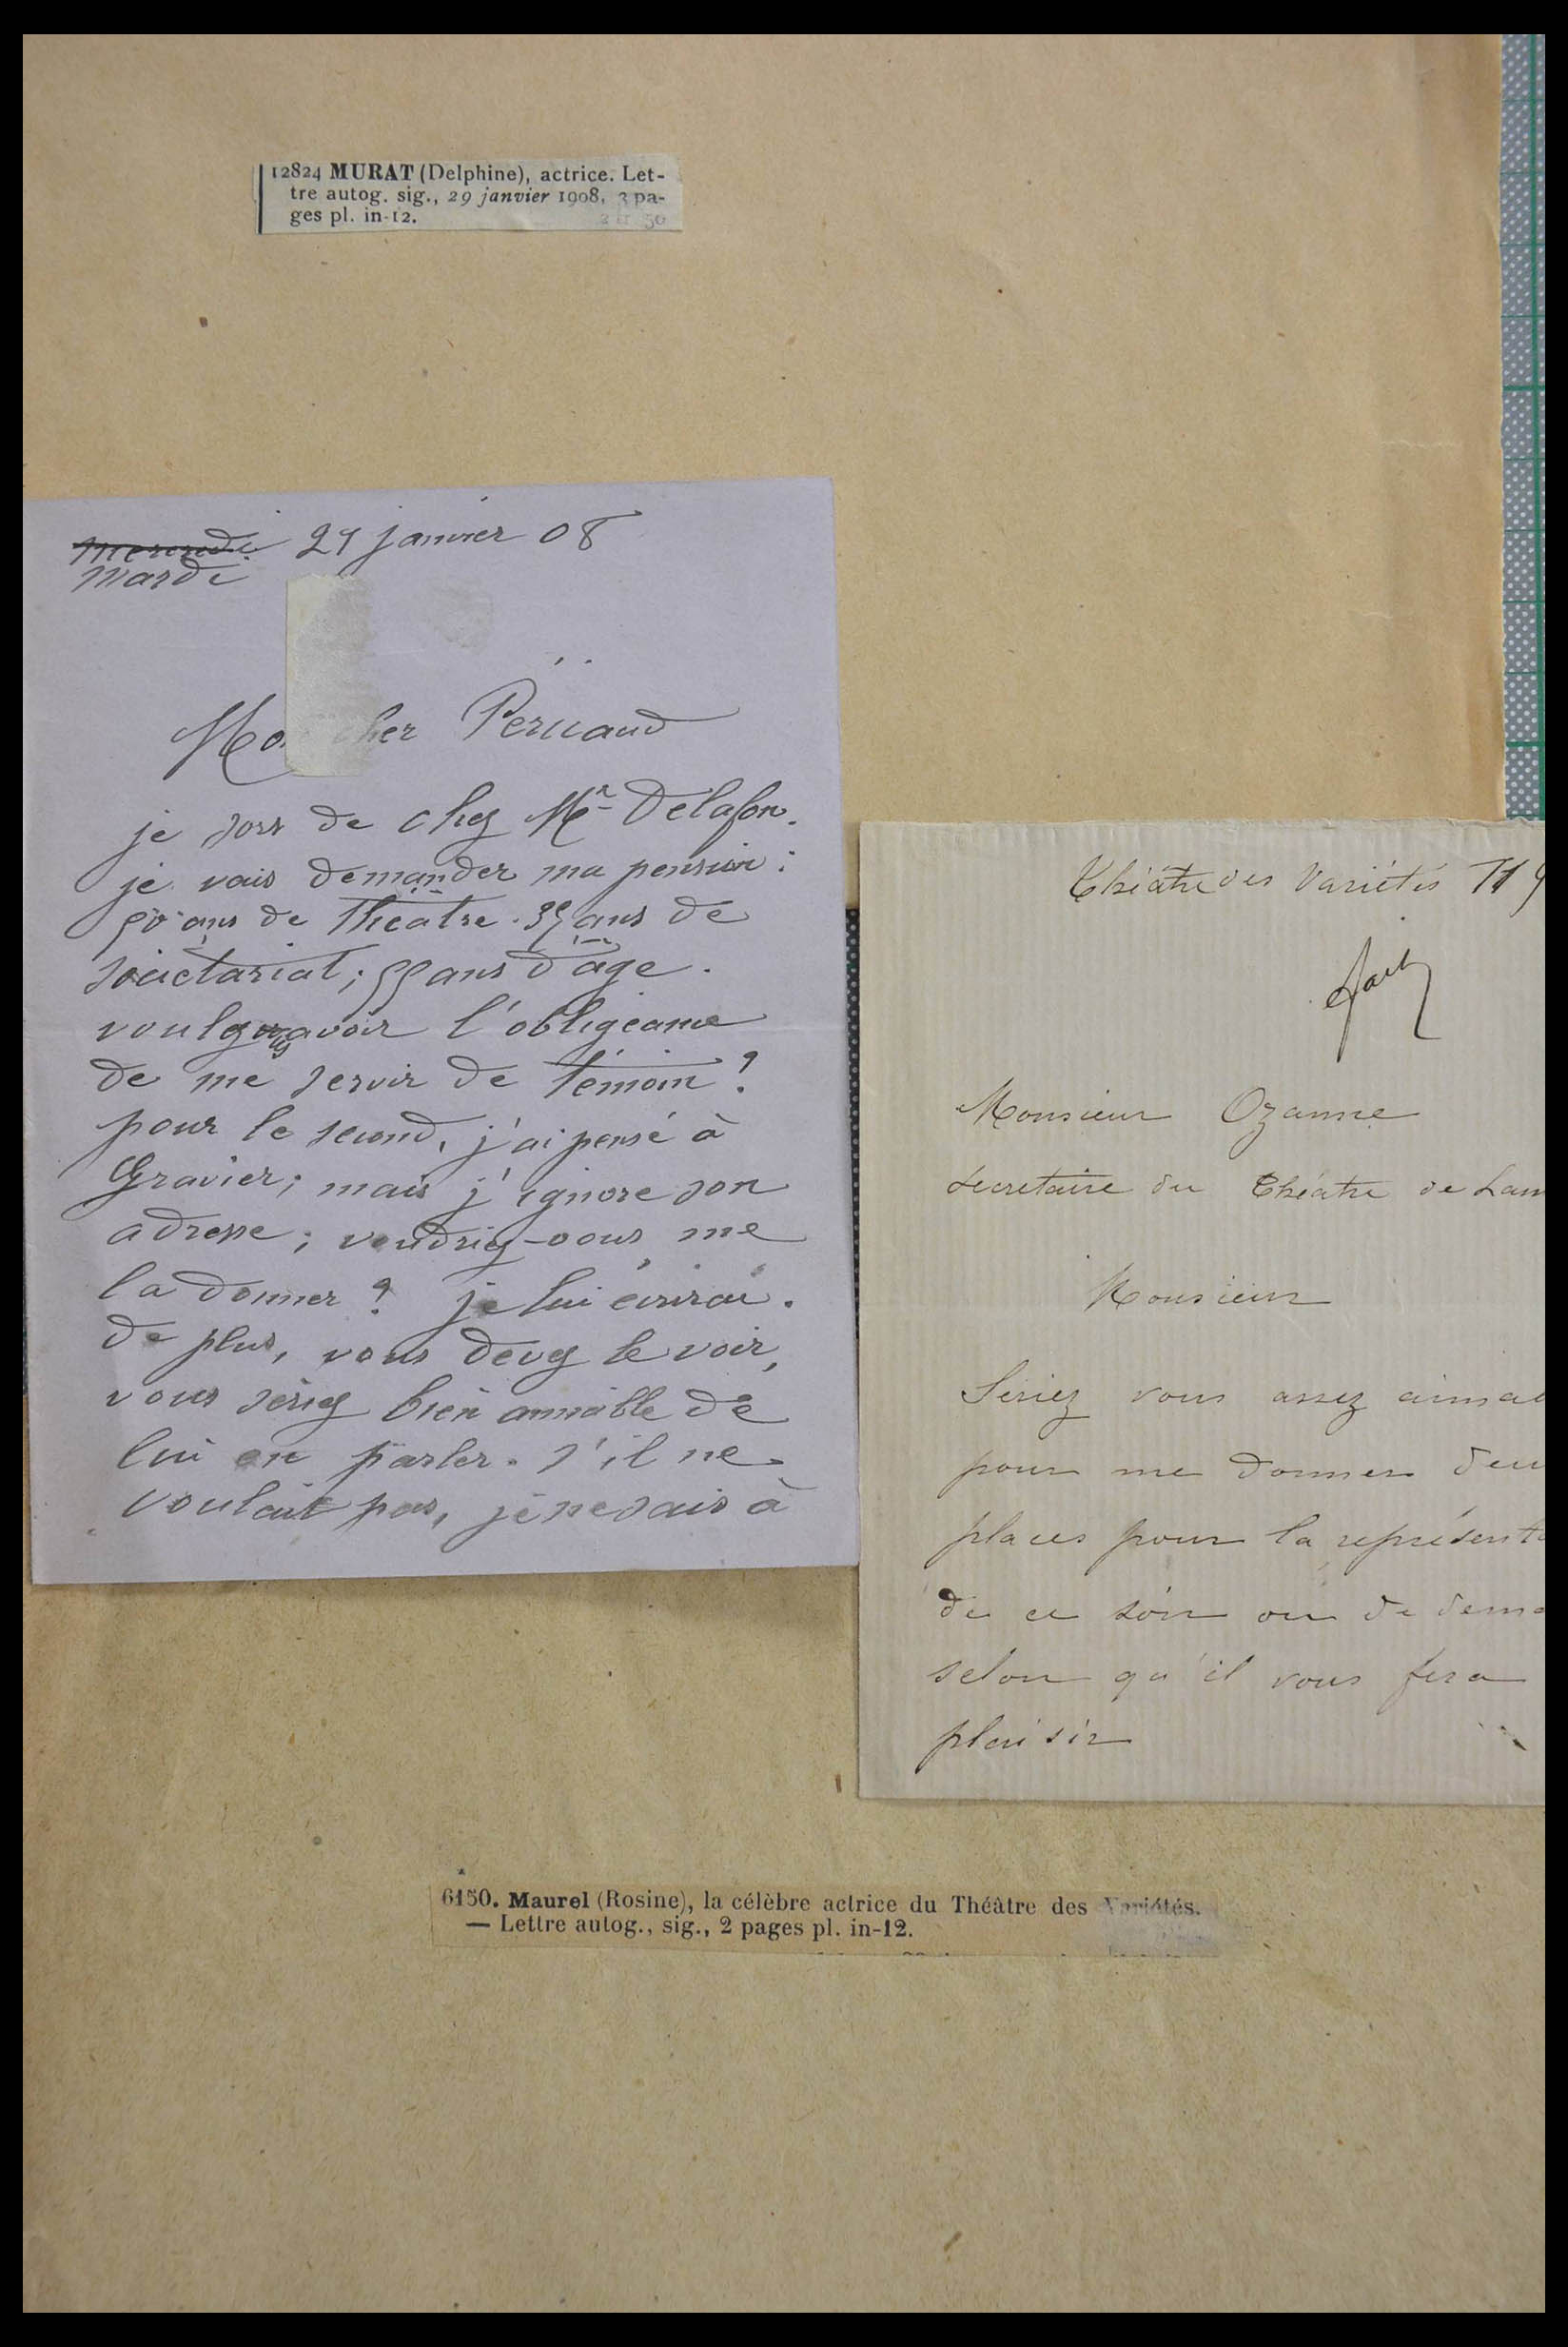 12824 MURAT (Delphine), actrice. Let-
tre autog. sig., 29 janvier 1908, 3 pa-
ges pl. in-12. 2 fr 50
mercredi 29 janvier 08
mardi
Mon cher Péricaud
je sors de chez Mr Delafon.
je vais demander ma pension :
50 ans de théâtre. 35 ans de
sociétariat ; 55 ans d'âge.
voulez avoir l'obligeance
de me servir de témoin ?
pour le second, j'ai pensé à
Gravier ; mais j'ignore son
adresse ; voudriez-vous me
la donner ? je lui écrirai.
De plus, vous devez le voir,
vous seriez bien aimable de
lui en parler. S'il ne
voulait pas, je ne sais à
Théâtre des Variétés
Monsieur Ozanne
secretaire du Théatre de Lam
Monsieur
Seriez vous assez aimab
pour me donner deu
places pour la représenta
de ce soir ou de dema
selon qu'il vous fera
plaisir
6150. Maurel (Rosine), la célèbre actrice du Théâtre des Variétés.
— Lettre autog., sig., 2 pages pl. in-12.